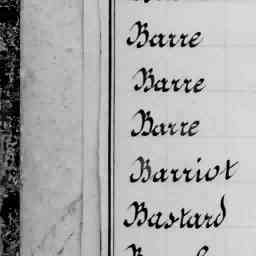 Barre
Barre
Barre
Barriot
Bastard